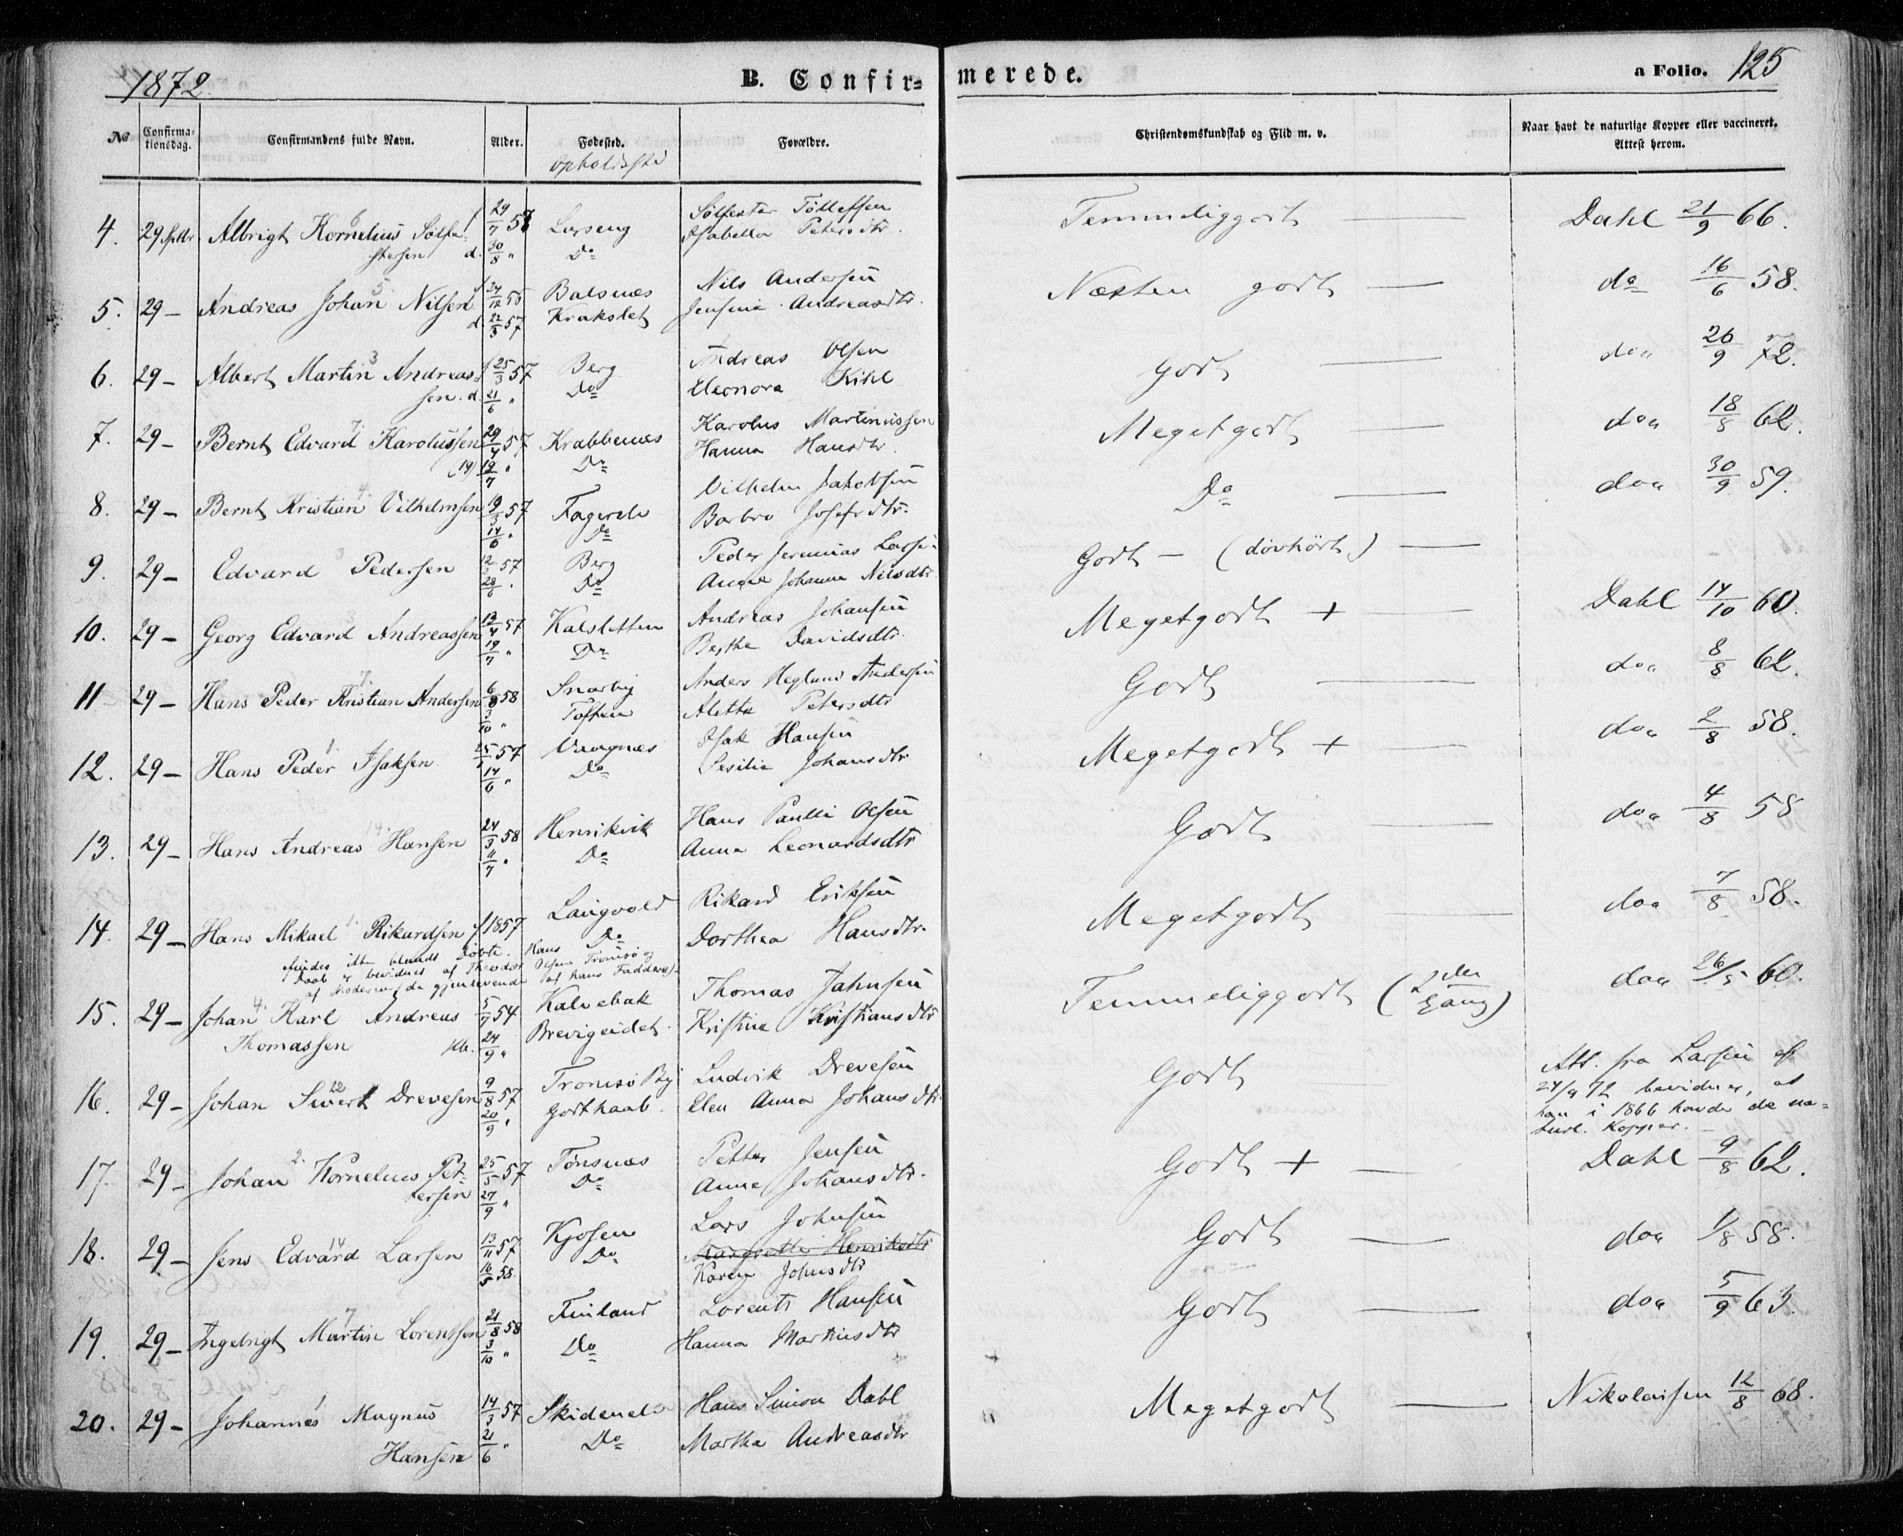 1872.
B. Confirmerede.
a Folio. 125
No
Confirmationsdag.
Confirmandens fulde Navn.
Alder.
Fødested.
Opholdssted
Forældre.
Christendomskundskab og Flid m. v.
Naar havt de naturlige Kopper eller vaccineret.
Attest herom.
4. 29 Septbr Albrigt Kornelius Sølfe- f 29/7 58 Larseng Sølfester Tølleffsen Temmeliggodt — Dahl 21/9 66.
stersen d. 30/8 " Do Isabella Petersdtr.
5. 29 — Andreas Johan Nilsen f 24/12 56 Balsnæs Nils Andersen Næsten godt — do 16/6 58.
d 22/3 57 Krokslet Jensine Andreasdtr.
6. 29 — Albert Martin Andreas- f 25/3 57 Berg Andreas Olsen godt — do 26/9 72.
sen. d. 21/6 " Do Eleonora Kihl
7. 29 — Bernt Edvard Karolussen 29/4 57 Krabbenæs Karolus Martinussen Megetgodt — do 18/8 62.
19/7 " Do Hanna Hansdtr.
8. 29 — Bernt Kristian Vilhelmsen 19/3 57 Fagereli Vilhelm Jakobsen Do — do 30/9 59.
14/6 " Do Barbro Josefsdtr.
9. 29 — Edvard Pedersen 12/3 57 Berg Peder Jeremias Larsen Godt — (døvhørt) —
28/6 " Do Anna Johanna Nilsdtr.
10. 29 — Georg Edvard Andreassen 13/4 57 Kalsletten Andreas Johansen Megetgodt + — Dahl 14/10 60.
19/7 " Do Berthe Davidsdtr.
11 29 — Hans Peder Kristian Andersen 6/8 58 Snarby Anders Heglund Andersen Godt — do 8/8 62.
3/10 " Toften Aletta Petersdtr
12. 29 — Hans Peder Isaksen 57 Vaagnæs Isak Hansen Megetgodt + — do 2/8 58.
14/6 " Do Pesilie Johansdtr
13. 29 — Hans Andreas Hansen 24/3 58 Henrikvik Hans Paulli Olsen Godt — do 4/8 58
11/7 " Do Anna Leonardsdtr
14. 29 — Hans Mikael Rikardsen f 1857 Langvold Rikard Eriksen Megetgodt — do 7/8 58.
Do Dorthea Hansdtr.
findes ikke blandt Døbte. Hans
Daab er bevidnet af Theodor Olsen Tromsø og
af Moderen (de gjenlevende af hans Faddere)
15. 29 — Johan Karl Andreas 5/7 54 Kalvebak Thomas Jahnsen Temmeliggodt (2den Gang) do 26/5 60.
Thomassen 24/9 " Brevigeidet Kristine Kristiansdtr
16. 29 — Johan Sivert Drevesen 9/8 57 Tromsø By Ludvik Drevesen Godt
20/9 " Godthaab. Elen Anna Johansdtr.
Att. fra Larsen af
24/9 72 bevidner, at
han i 1866 havde de na-
turl. Kopper. —
17. 29 — Johan Kornelius Pet- 25/5 57 Tønsnæs Petter Jensen Godt + — Dahl 9/8 62.
tersen 27/9 " Do Anna Johansdtr.
18. 29 — Jens Edvard Larsen 13/11 57 Kjosen Lars Johnsen Godt — do 1/8 58.
16/5 58. Do Margrethe Henriksdtr
Karen Johnsdtr
19. 29 — Ingebrigt Martin Lorentsen 21/8 58 Finland Lorents Hansen Godt — do 5/9 63.
3/10 " Do Hanna Martinsdtr
20. 29 — Johannes Magnus 14/3 57 Skidenelv Hans Simon Dahl Megetgodt — Nikolaissen 12/8 68.
Hansen 21/6 " Do Martha Andreasdtr